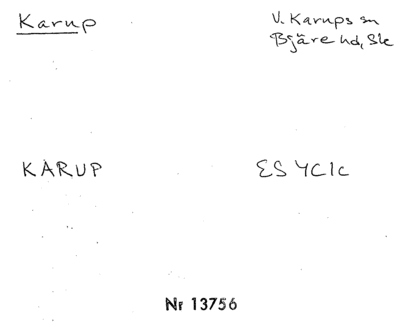 Karup
V. Karups sn
Bjäre hd, Sk
KARUP
ES 4C1c
Nr 13756